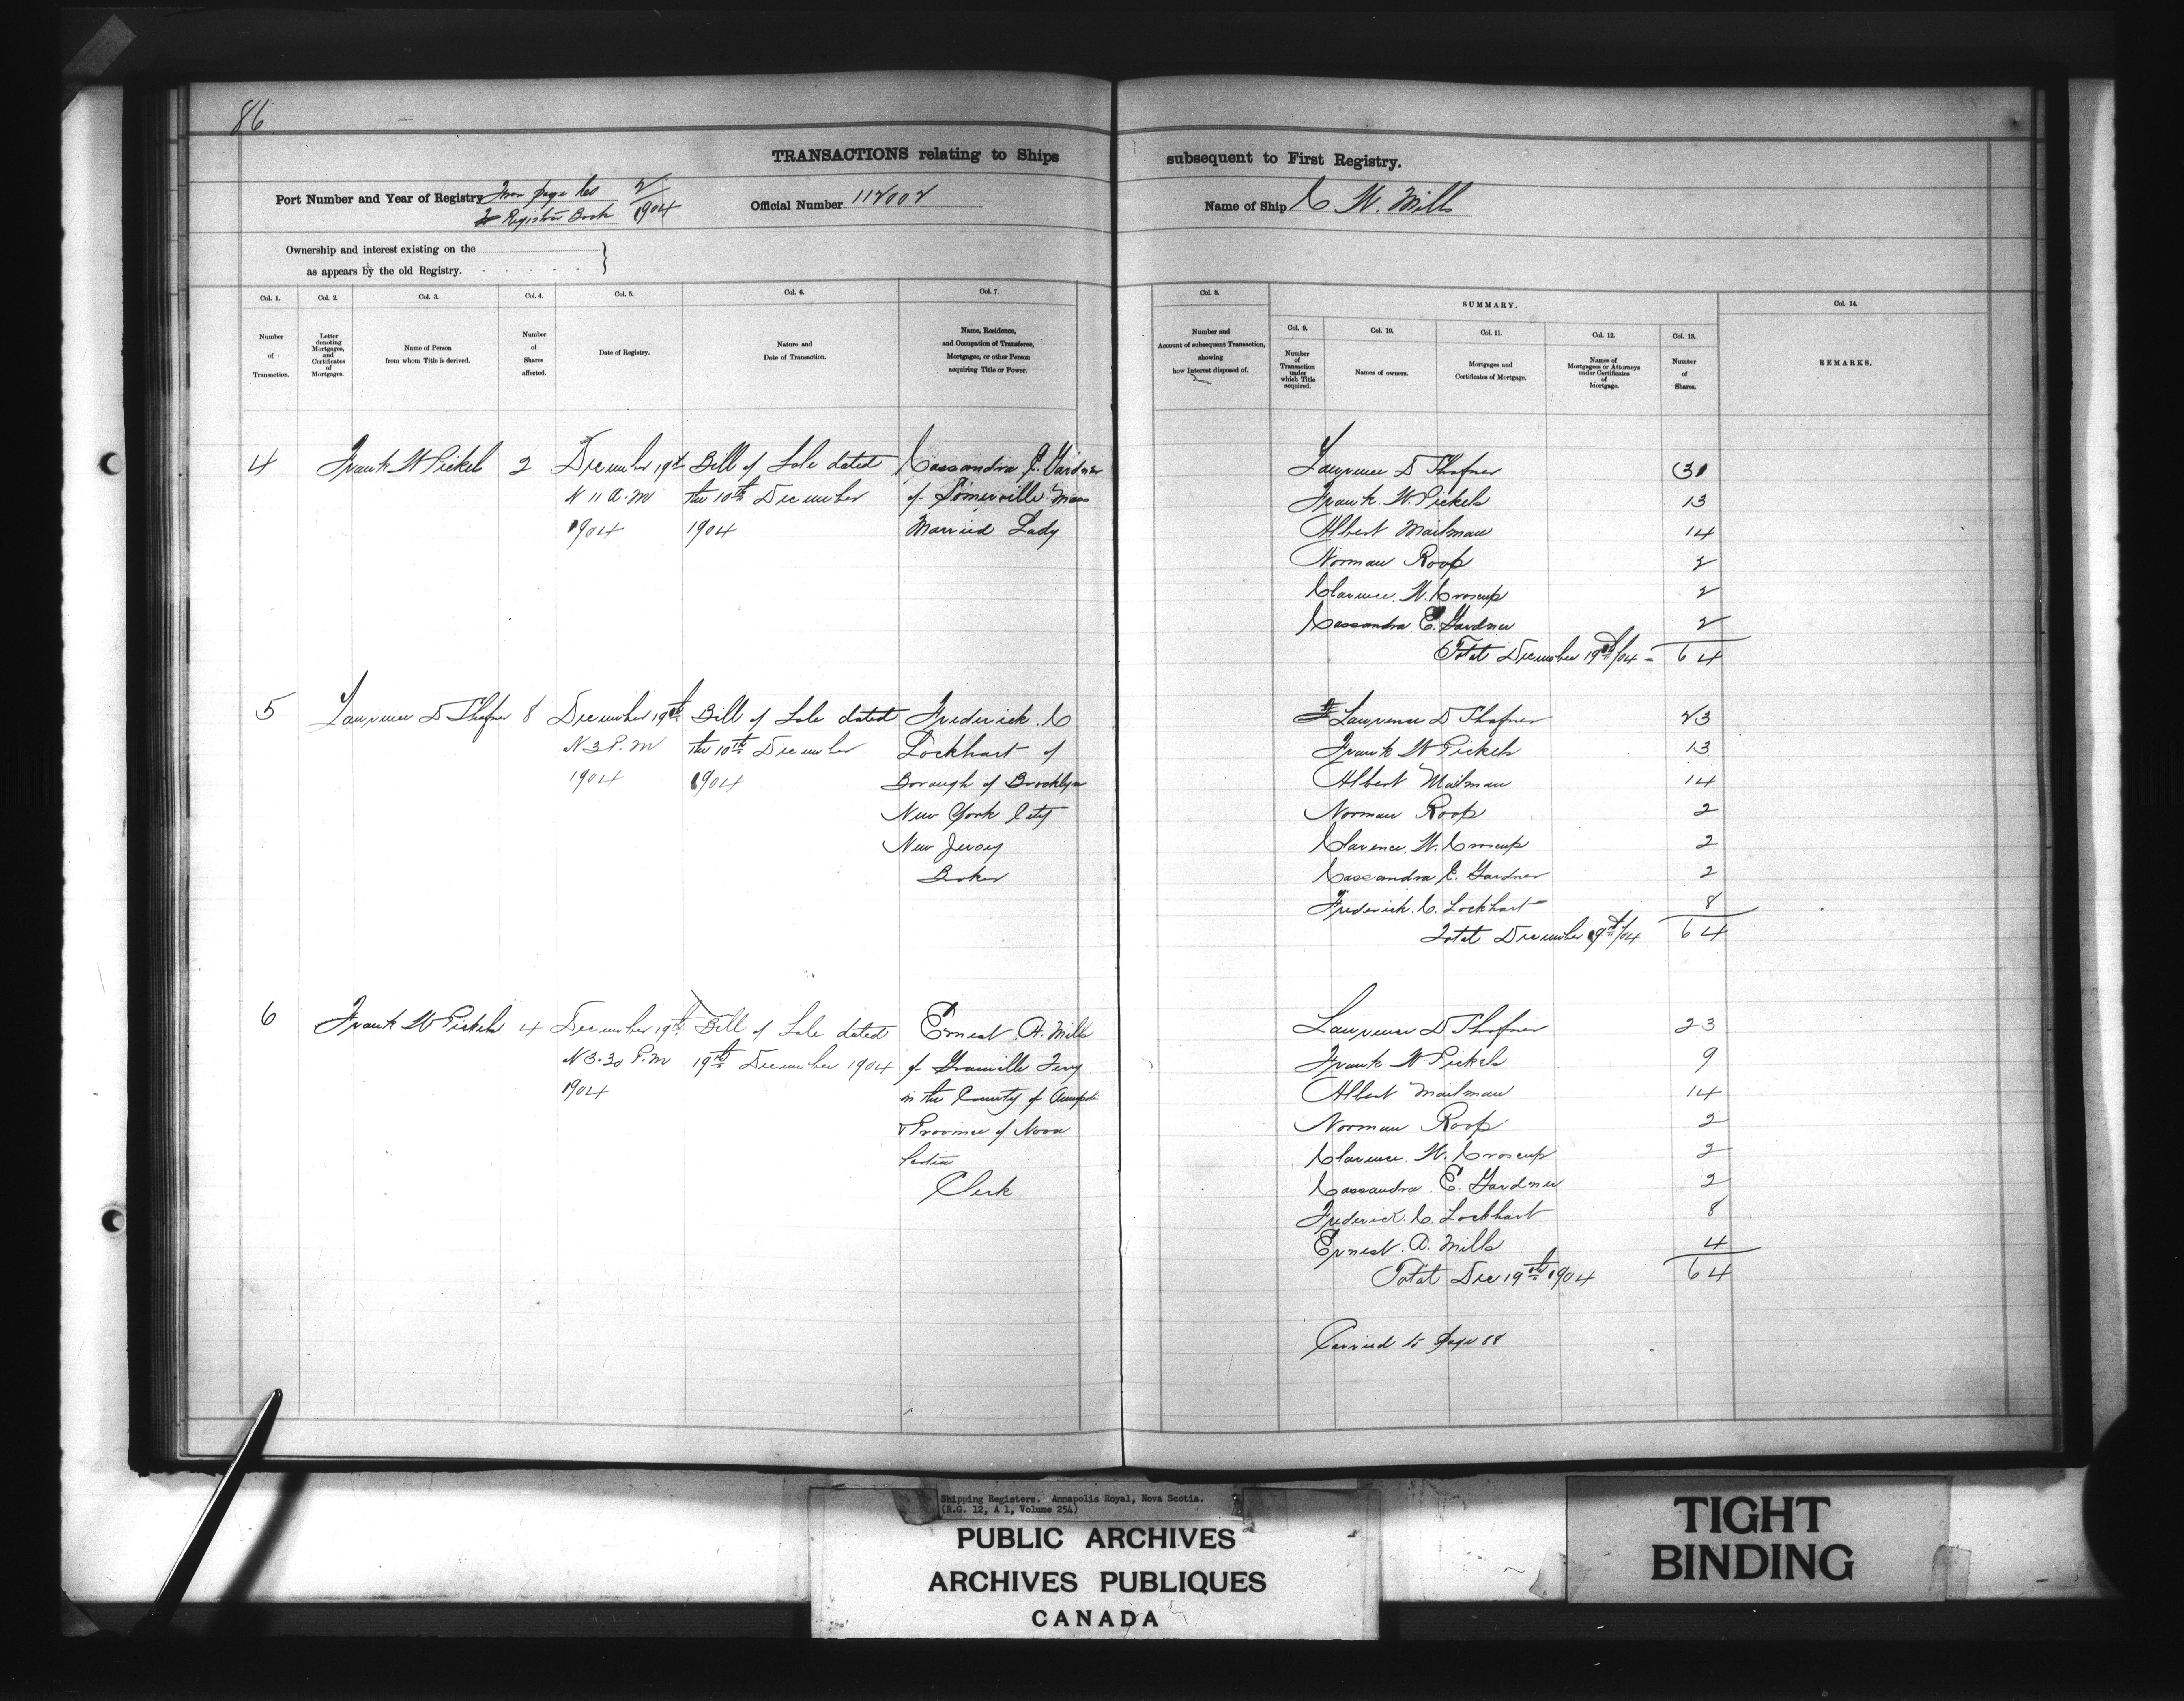 86
TRANSACTIONS relating to Ships subsequent to First Registry.
Port Number and Year of Registry From page 60 2/1904
Registers Book
Official Number 112002
Name of Ship C. W. Mills
Ownership and interest existing on the
as appears by the old Registry.
Col. 1. Col. 2. Col. 3. Col. 4. Col. 5. Col. 6. Col. 7. Col. 8. SUMMARY. Col. 14.
Col. 9. Col. 10. Col. 11. Col. 12. Col. 13.
Number of Transaction.
Letter denoting Mortgages, and Certificates of Mortgages.
Name of Person from whom Title is derived.
Number of Shares affected.
Date of Registry.
Nature and Date of Transaction.
Name, Residence, and Occupation of Transferee, Mortgagee, or other Person acquiring Title or Power.
Number and Account of subsequent Transaction, showing how Interest disposed of.
Number of Transaction under which Title acquired.
Names of owners.
Mortgages and Certificates of Mortgage.
Names of Mortgagees or Attorneys under Certificates of Mortgage.
Number of Shares.
REMARKS.
4 Frank W Pickels 2 December 19th Bill of Sale dated Cassandra E. Gardner
N 11 A.M the 10th December of Somerville Mass
1904 1904 Married Lady
Lawrence D Shafner 31
Frank. W. Pickels 13
Albert Mailman 14
Norman Roop 2
Clarence. W. Croscup 2
Cassandra E. Gardner 2
Total December 19th/04 - 64
5 Lawrence D Shafner 8 December 19th Bill of Sale dated Frederick. C
N 3 P.M the 10th December Lockhart of
1904 1904 Borough of Brooklyn
New York City
New Jersey
Broker
Lawrence D Shafner 23
Frank W Pickels 13
Albert Mailman 14
Norman Roop 2
Clarence. W. Croscup 2
Cassandra E. Gardner 2
Frederick. C. Lockhart 8
Total December 19th/04 64
6 Frank W Pickels 4 December 19th Bill of Sale dated Ernest A. Mills
N 3.30 P.M 19th December 1904 of Granville Ferry
1904 in the County of Annapolis
Province of Nova
Scotia
Clerk
Lawrence D Shafner 23
Frank W Pickels 9
Albert Mailman 14
Norman Roop 2
Clarence. W. Croscup 2
Cassandra. E. Gardner 2
Frederick. C. Lockhart 8
Ernest. A. Mills 4
Total Dec 19th 1904 64
Carried to page 88
Shipping Registers. Annapolis Royal, Nova Scotia.
(R.G. 12, A 1, Volume 254)
PUBLIC ARCHIVES
ARCHIVES PUBLIQUES
CANADA
TIGHT
BINDING